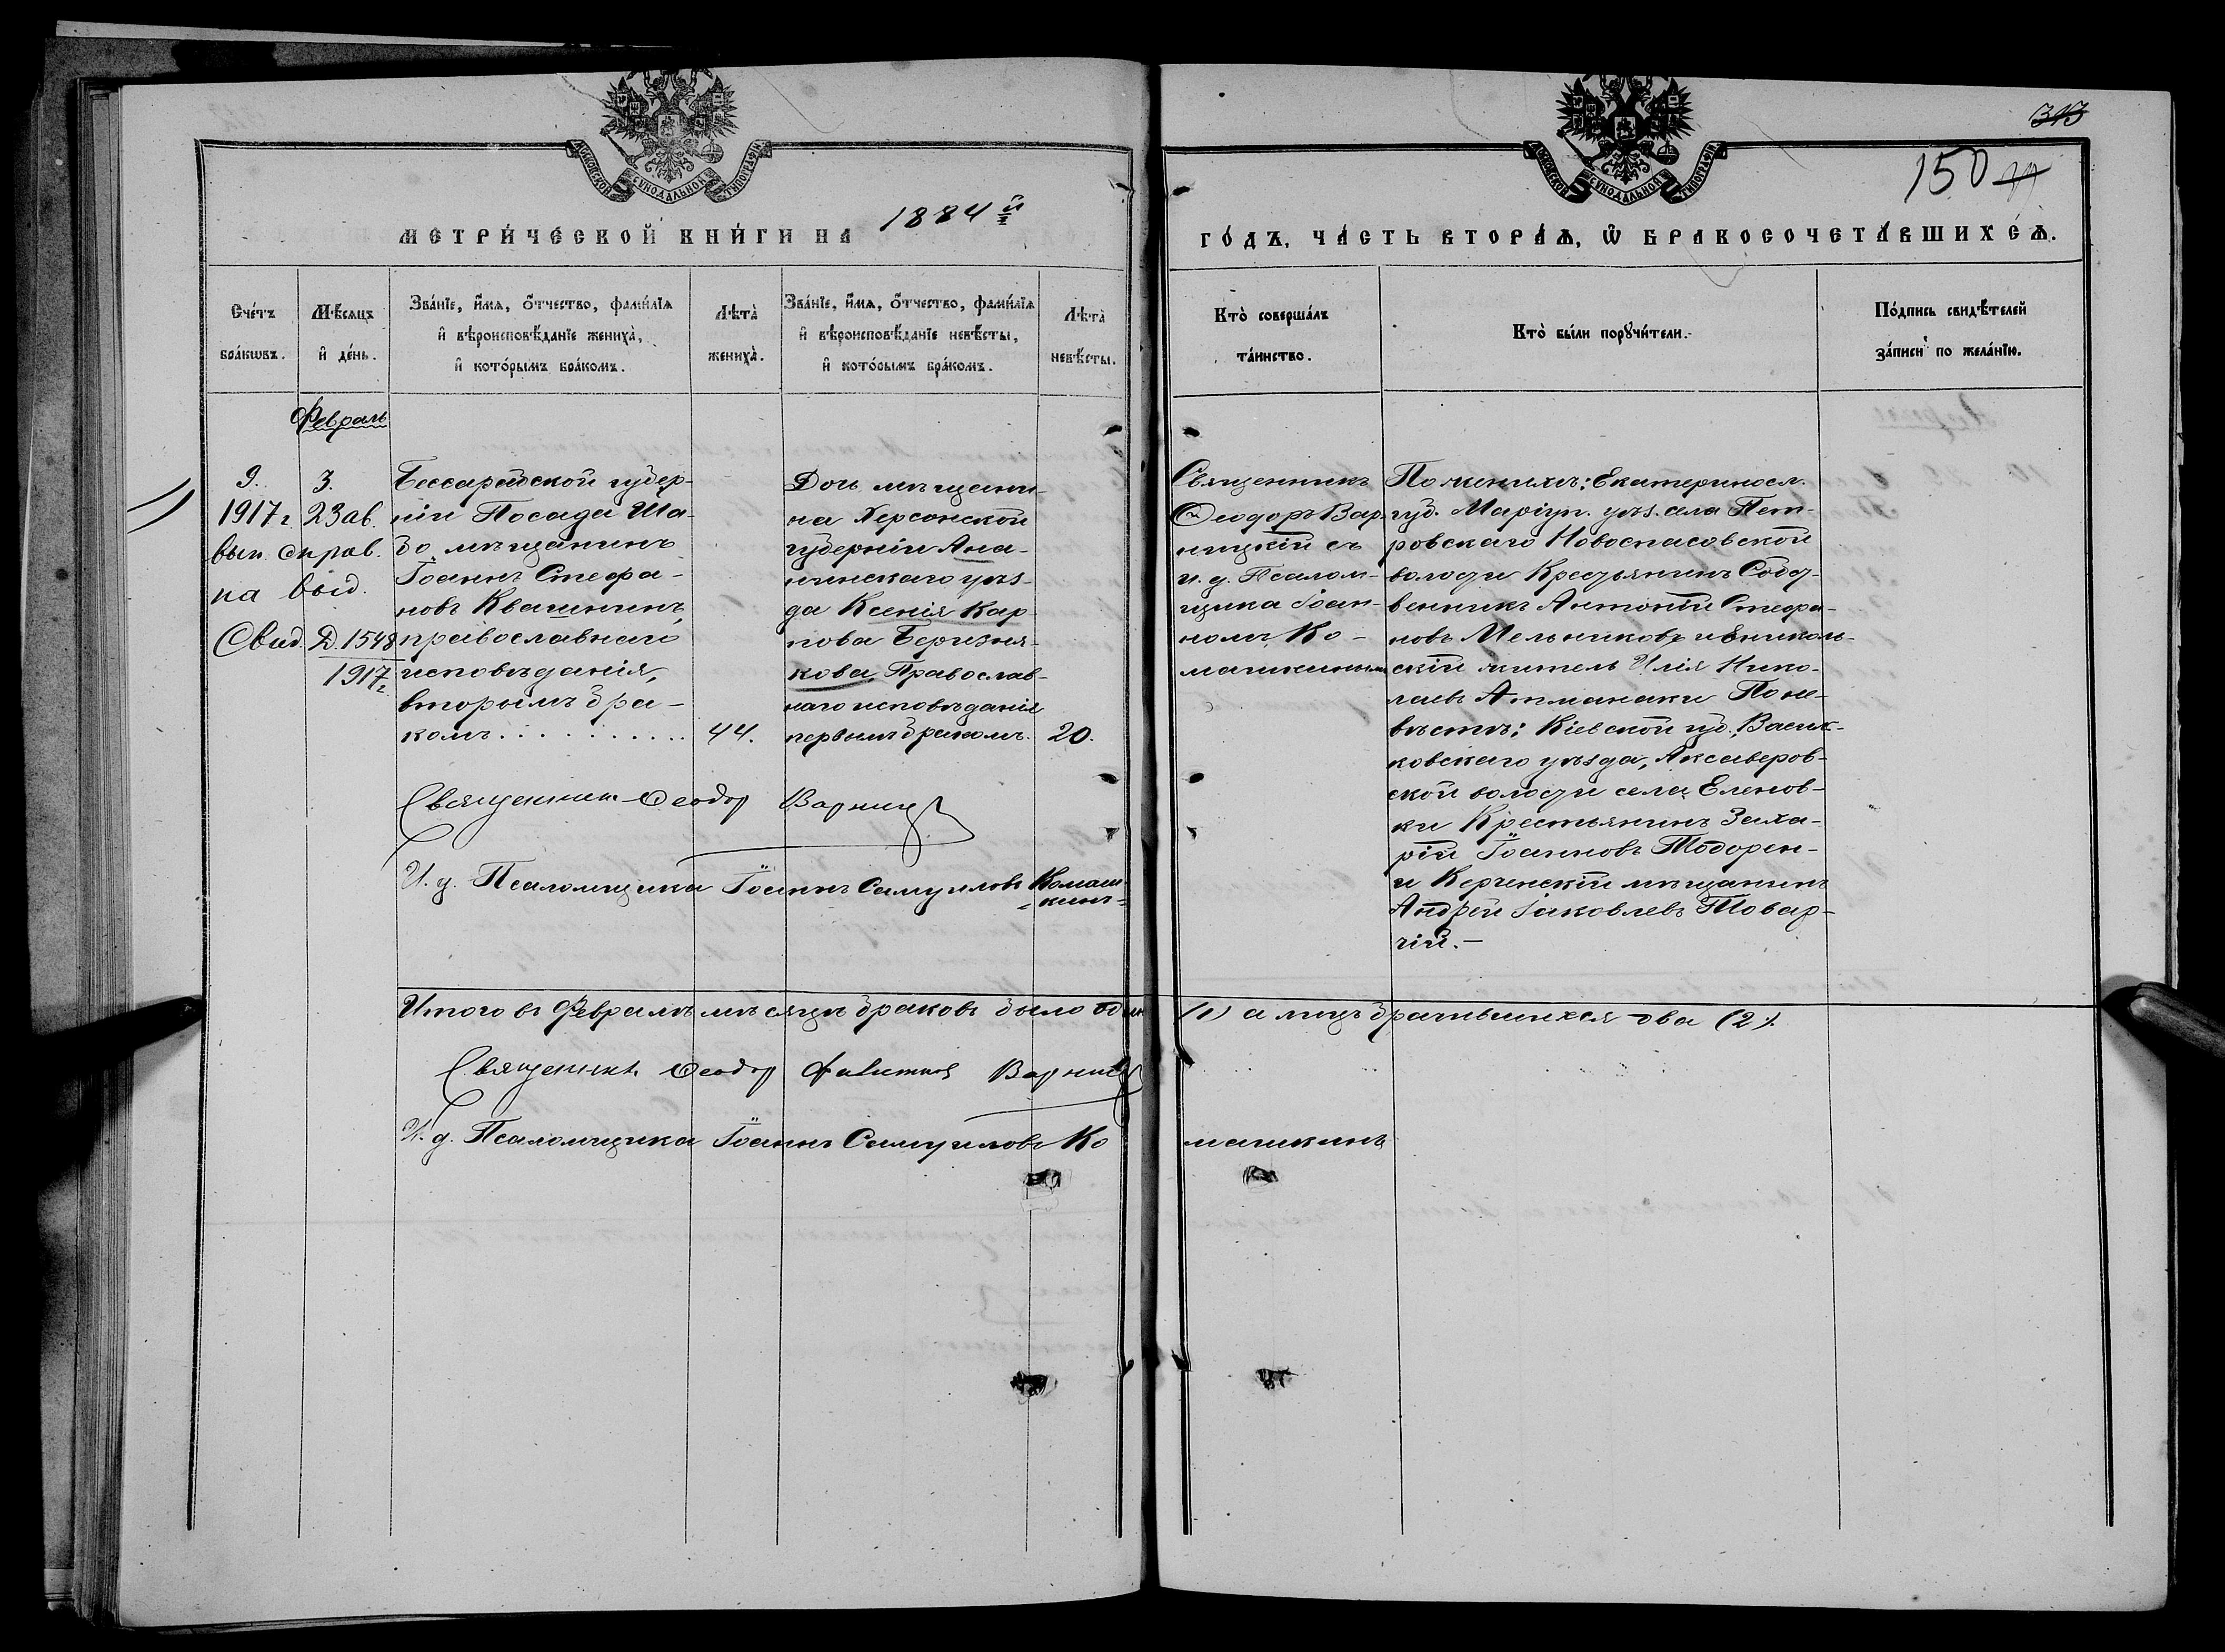 313
150
МОСКОВСКОЙ СѴНОДАЛЬНОЙ ТИПОГРАФІИ
МОСКОВСКОЙ СѴНОДАЛЬНОЙ ТИПОГРАФІИ
МЕТРИ́ЧЕСКОЙ КНИ́ГИ НА 1884й
ГО́ДЪ, ЧА́СТЬ ВТОРА́Ѧ, Ѽ БРАКОСОЧЕТА́ВШИХСѦ.
Сче́тъ
бра́кѡвъ.
Мѣ́сѧцъ
и҆ де́нь.
Зва́нїе, и҆́мѧ, ѻ҆́тчество, фами́лїѧ
и҆ вѣроисповѣ́данїе жениха̀,
и҆ кото́рымъ бра́комъ.
Лѣта̀
жениха̀.
Зва́нїе, и҆́мѧ, ѻ҆́тчество, фами́лїѧ
и҆ вѣроисповѣ́данїе невѣ́сты,
и҆ кото́рымъ бра́комъ.
Лѣта̀
невѣ́сты.
Кто̀ соверша́лъ
та́инство.
Кто̀ бы́ли порꙋчи́тели.
По́дпись свидѣ́телей
за́писи по жела́нїю.
Февраль
9.
1917 г.
вып. справ.
на выд.
Свид. Д. 1548
1917 г.
3.
23 ав.
Бессарабской губер-
ніи Посада Ша-
бо мѣщанинъ
Іоаннъ Стефа-
новъ Квашнинъ,
православнаго
исповѣданія,
вторымъ бра-
комъ . . . . . . . . . .
44.
Дочь мѣщани-
на Херсонской
губерніи Ана-
ньинскаго уѣз-
да Ксенія Кар-
пова Беризня-
кова, Православ-
наго исповѣданія
первымъ бракомъ.
20.
Священникъ
Ѳеодоръ Вар-
ницкій съ
и. д. Псалом-
щика Іоан-
номъ Ко-
машкинымъ
По женихѣ: Екатериносл.
губ. Маріуп. уѣз. села Пет-
ровскаго Новоспасовской
волости Крестьянинъ Собст-
венникъ Антоній Стефа-
новъ Мельниковъ и Ениколь-
скій житель Илія Нико-
лаевъ Атманаки По не-
вѣстѣ: Кіевской губ. Васил-
ковскаго уѣзда, Аксаверов-
ской волости села Еленов-
ки Крестьянинъ Заха-
рій Іоанновъ Тодорен-
и Керченскій мѣщанинъ
Андрей Іаковлевъ Товар-
чій.—
Священникъ Ѳеодоръ Варницк
И. д. Псаломщика Іоаннъ Самуиловъ Комаш-
кинъ
Итого въ Февралѣ мѣсяцѣ браковъ было одинъ (1) а лицъ брачившихся два (2).
Священникъ Ѳеодоръ Варницк
И. д. Псаломщика Іоаннъ Самуиловъ Комашкинъ